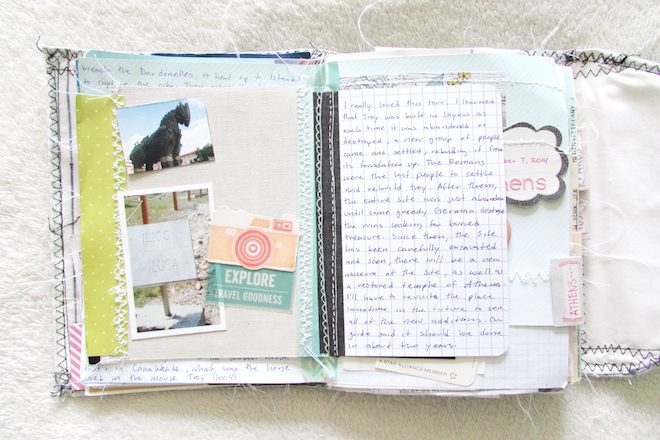 breach the Dardanelles, to head up to Istanbul
EXPLORE
TRAVEL GOODNESS
that's in Canakkale, which was the horse
used in the movie Troy (2004).
I really loved this tour. I learned
that Troy was built in layers as
each time it was abandoned or
destroyed, a new group of people
came and settled, rebuilding it from
its foundation up. The Romans
were the last people to settle
and rebuild Troy. After them,
the entire site was just abandoned
until some greedy German destroyed
the ruins looking for buried
treasure. Since then, the site
has been carefully excavated
and soon, there will be a new
museum at the site, as well as
a restored temple of Athena.
I'll have to revisit the place
sometime in the future to see
all of the new additions. Our
guide said it should be done
in about two years.
7, 2014
hens
ATHENS
STAR ALLIANCE MEMBER